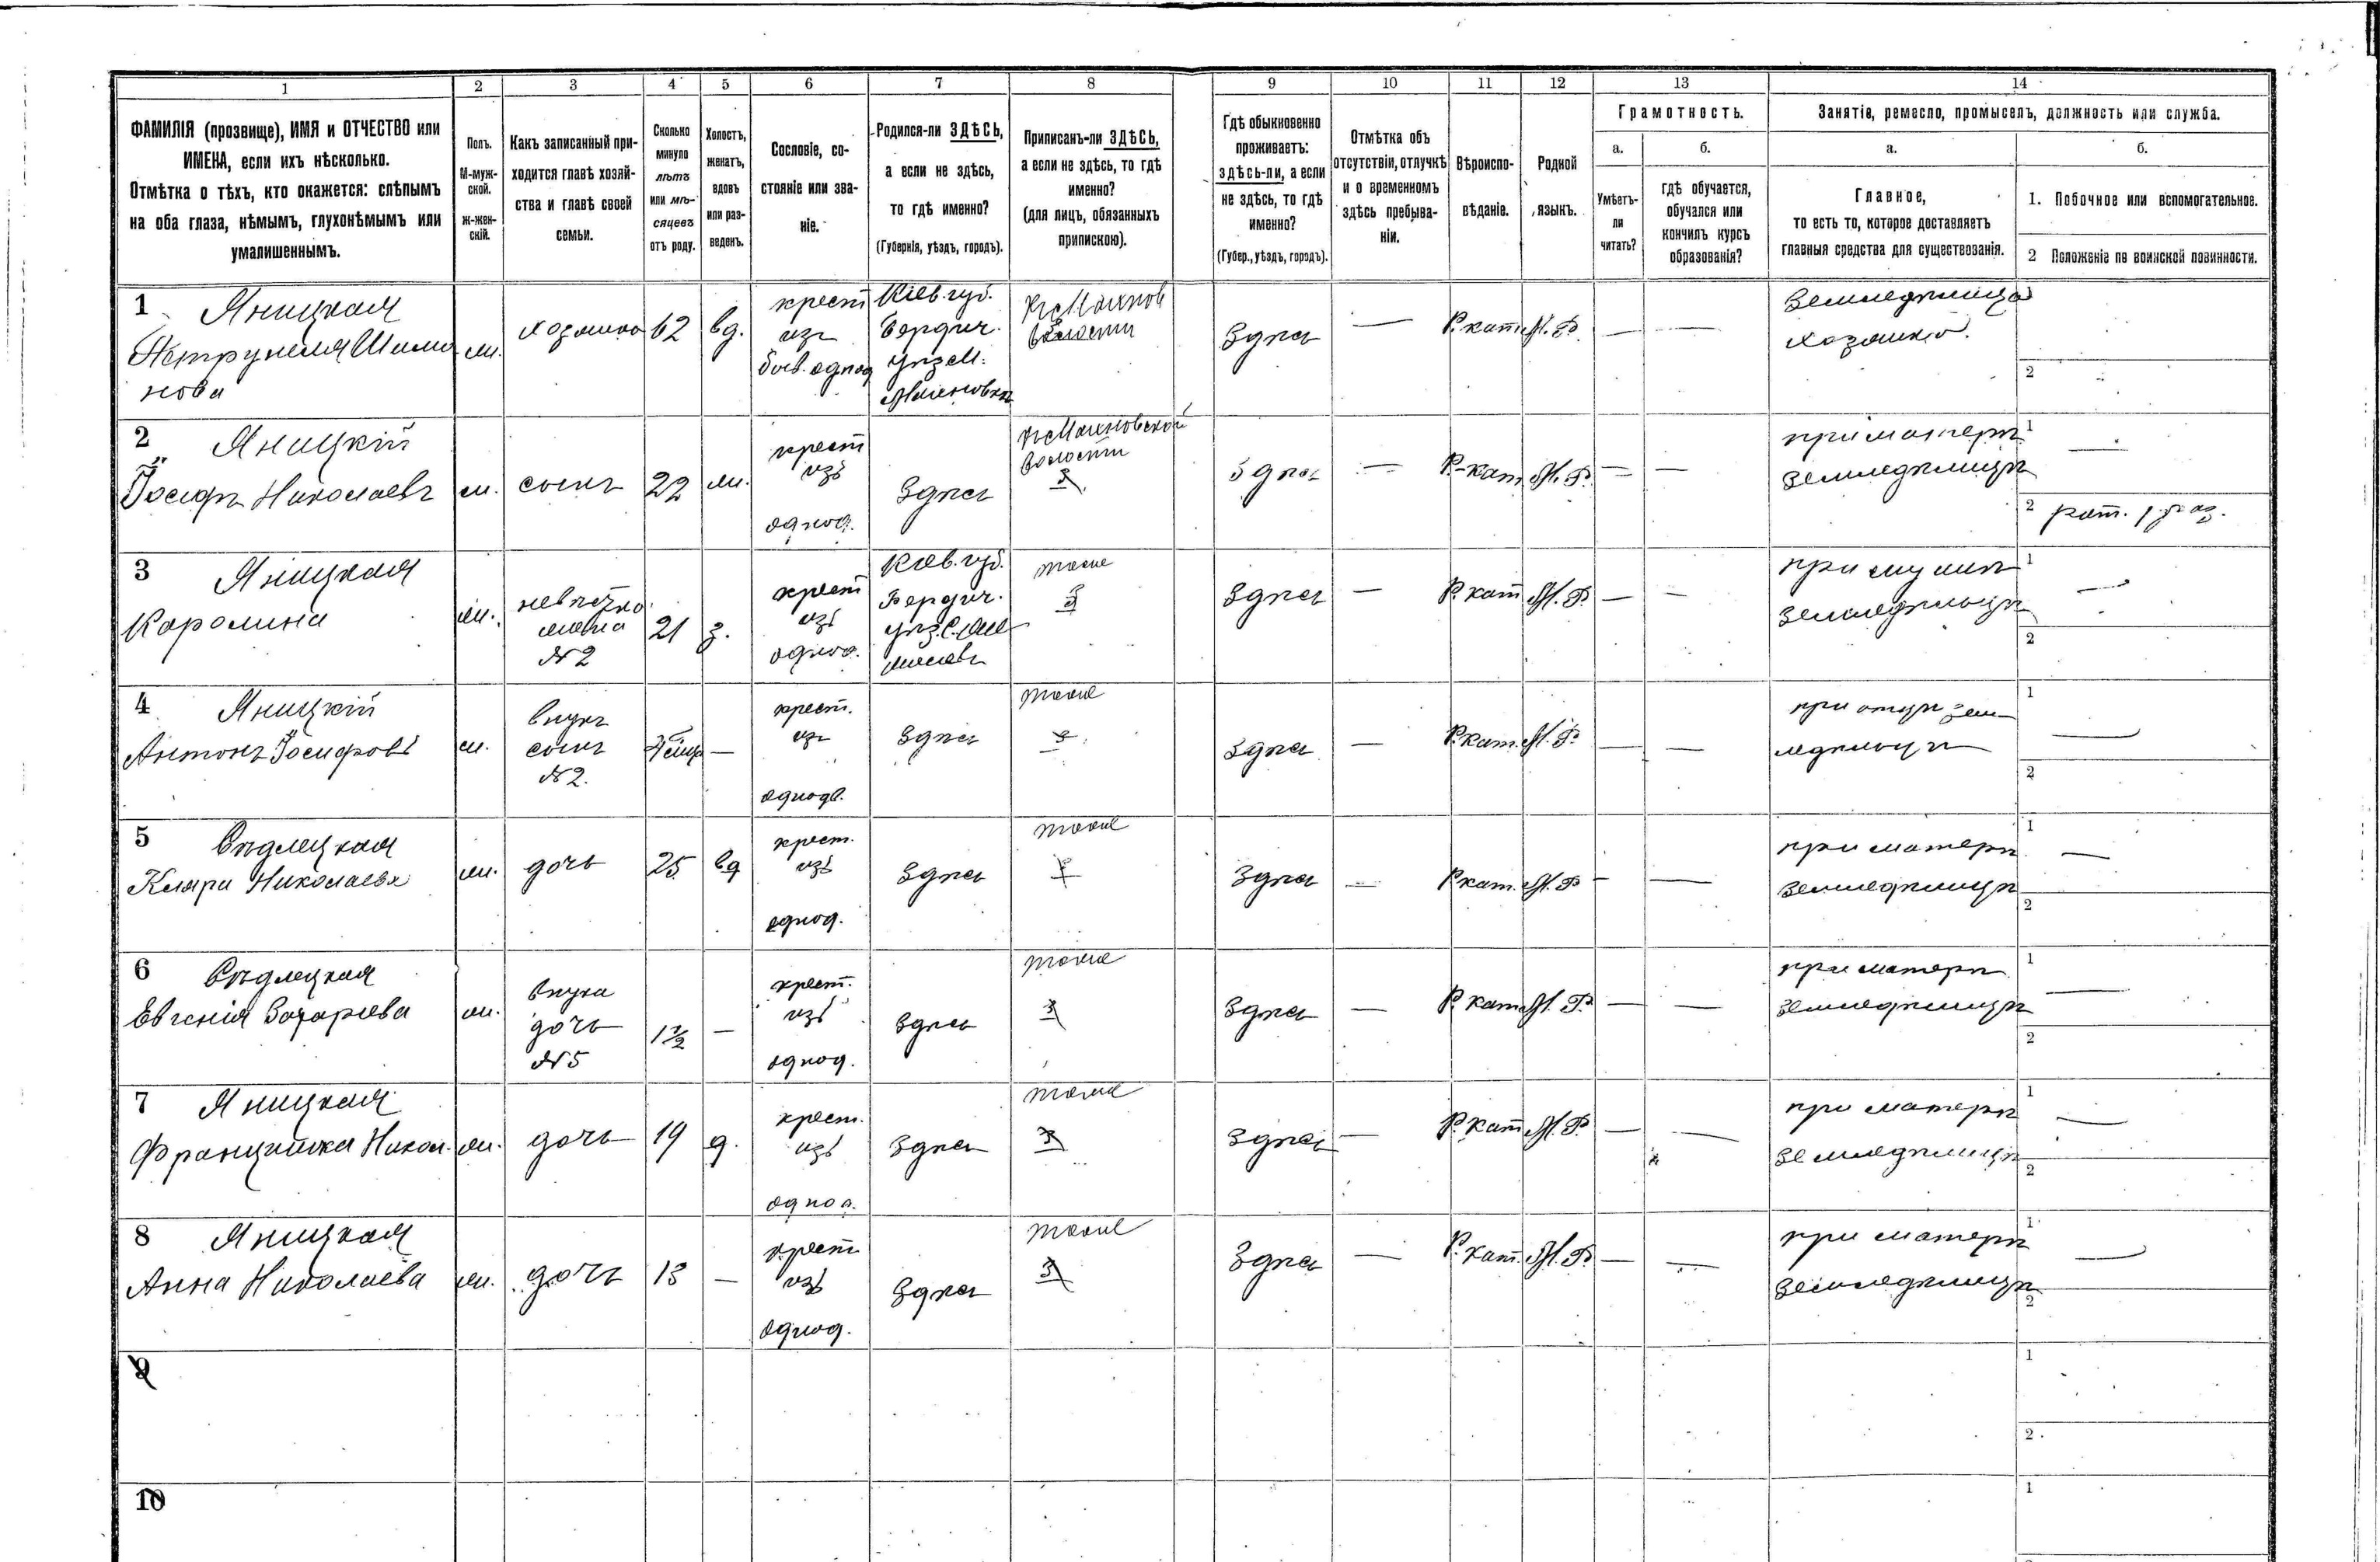 1 2 3 4 5 6 7 8 9 10 11 12 13 14
ФАМИЛІЯ (прозвище), ИМЯ и ОТЧЕСТВО или
ИМЕНА, если ихъ нѣсколько.
Отмѣтка о тѣхъ, кто окажется: слѣпымъ
на оба глаза, нѣмымъ, глухонѣмымъ или
умалишеннымъ.
Полъ.
М-муж-
ской.
ж-жен-
скій.
Какъ записанный при-
ходится главѣ хозяй-
ства и главѣ своей
семьи.
Сколько
минуло
лѣтъ
или мѣ-
сяцевъ
отъ роду.
Холостъ,
женатъ,
вдовъ
или раз-
веденъ.
Сословіе, со-
стояніе или зва-
ніе.
Родился-ли ЗДѢСЬ,
а если не здѣсь,
то гдѣ именно?
(Губернія, уѣздъ, городъ).
Приписанъ-ли ЗДѢСЬ,
а если не здѣсь, то гдѣ
именно?
(для лицъ, обязанныхъ
припискою).
Гдѣ обыкновенно
проживаетъ:
здѣсь-ли, а если
не здѣсь, то гдѣ
именно?
(Губер., уѣздъ, городъ).
Отмѣтка объ
отсутствіи, отлучкѣ
и о временномъ
здѣсь пребыва-
ніи.
Вѣроиспо-
вѣданіе.
Родной
языкъ.
Грамотность.
а.
Умѣетъ-
ли
читать?
б.
гдѣ обучается,
обучался или
кончилъ курсъ
образованія?
Занятіе, ремесло, промыселъ, должность или служба.
а.
Главное,
то есть то, которое доставляетъ
главныя средства для существованія.
б.
1. Побочное или вспомогательное.
2 Положеніе по воинской повинности.
1 Яницкая
Петрунеля Шимо
нова
хозяйка
62
вд.
крест
изъ
одно
Кіев. губ.
Бердич.
уѣз. м.
Махновкѣ
волости
Здѣсь
—
Р. кат.
—
—
Земледѣлица
хозяйка.
2
2 Яницкій
Іосифъ Николаевъ
м.
сынъ
22
крест
изъ
однод.
Здѣсь
Махновской
волости
Здѣсь
—
Р.-кат.
—
—
при матери
земледѣлицѣ
1 —
2 рат. 1 раз.
3 Яницкая
Каролина
невѣстка
жена
№ 2
21
з.
крест
изъ
однод.
Кіев. губ.
Бердич.
уѣз. с.
тоже
Здѣсь
—
Р. кат
—
—
при мужѣ
земледѣльцѣ
1 —
2
4 Яницкій
Антонъ Іосифовъ
м.
внукъ
сынъ
№ 2.
—
крест.
изъ
однодв.
Здѣсь
тоже
Здѣсь
—
Р. кат.
—
—
при отцѣ зем-
ледѣльцѣ
1 —
2
5
Клара Николаева
дочь
25
вд
крест.
изъ
однод.
Здѣсь
тоже
Здѣсь
—
Р. кат.
—
—
при матери
земледѣлицѣ
1 —
2
6
Евгенія
внука
дочь
№ 5
1½
—
крест.
изъ
однод.
Здѣсь
тоже
Здѣсь
—
Р. кат.
—
—
при матери
земледѣлицѣ
1 —
2
7 Яницкая
Францишка Никол.
дочь
19
д.
крест.
изъ
однод.
Здѣсь
тоже
Здѣсь
—
Р. кат
—
—
при матери
земледѣлицѣ
1 —
2
8 Яницкая
Анна Николаева
дочь
13
—
крест
изъ
однод.
Здѣсь
тоже
Здѣсь
—
Р. кат.
—
—
при матери
земледѣлицѣ
1 —
2
9
1
2
10
1